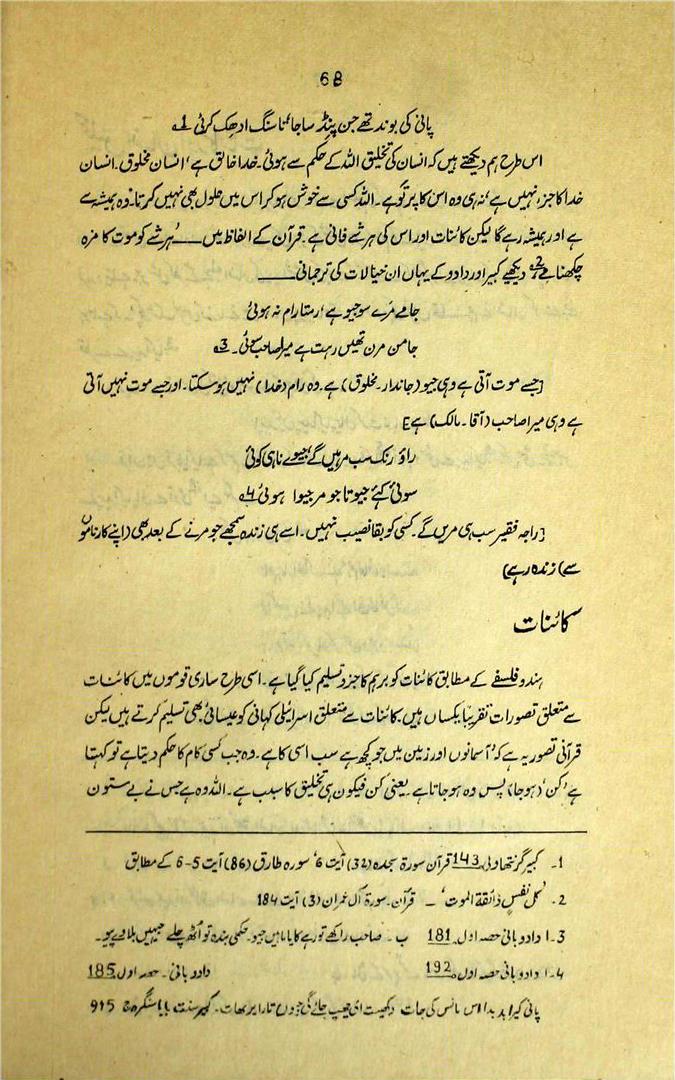 68
پانی کی بوند تھے جن پنڈ ساجا، تا سنگ ادھک کرئی 1
اس طرح ہم دیکھتے ہیں کہ انسان کی تخلیق اللہ کے حکم سے ہوئی۔ خدا خالق ہے، انسان مخلوق۔ انسان
خدا کا جزء نہیں ہے، نہ ہی وہ اس کا پرتو ہے۔ اللہ کسی سے خوش ہو کر اس میں حلول بھی نہیں کرتا۔ وہ ہمیشہ سے
ہے اور ہمیشہ رہے گا لیکن کائنات اور اس کی ہر شے فانی ہے۔ قرآن کے الفاظ میں ــــ ’ہر شے کو موت کا مزہ
چکھنا ہے‘ 2 دیکھیے کبیر اور دادو کے یہاں ان خیالات کی ترجمانی ــــ
جامے مرے سو جیو ہے، رمتا رام نہ ہوئی
جامن مرن تھیں رہت ہے میرا صاحب سوئی۔ 3
[جسے موت آتی ہے وہی جیو (جاندار۔ مخلوق) ہے۔ وہ رام (خدا) نہیں ہو سکتا۔ اور جسے موت نہیں آتی
ہے وہی میرا صاحب (آقا۔ مالک) ہے]
راؤ رنک سب مرہیں گے جیوے ناہی کوئی
سوئی کہئے جیوتا جو مرجیوا ہوئی 4
[راجہ فقیر سب ہی مریں گے۔ کسی کو بقا نصیب نہیں۔ اسے ہی زندہ سمجھے جو مرنے کے بعد بھی (اپنے کارناموں
سے) زندہ رہے]
کائنات
ہندو فلسفے کے مطابق کائنات کو برہم کا جزو تسلیم کیا گیا ہے۔ اسی طرح ساری قوموں میں کائنات
سے متعلق تصورات تقریباً یکساں ہیں۔ کائنات سے متعلق اسرائیلی کہانی کو عیسائی بھی تسلیم کرتے ہیں لیکن
قرآنی تصور یہ ہے کہ ’آسمانوں اور زمین میں جو کچھ ہے سب اسی کا ہے۔ وہ جب کسی کام کا حکم دیتا ہے تو کہتا
ہے ’کن‘ (ہو جا) پس وہ ہو جاتا ہے۔ یعنی کن فیکون ہی تخلیق کا سبب ہے۔ اللہ وہ ہے جس نے بے ستون
1۔ کبیر گرنتھاولی 143 قرآن سورۃ سجدہ (32) آیت 6، سورہ طارق (86) آیت 5-6 کے مطابق
2۔ ’کل نفس ذائقۃ الموت‘ ــ قرآن۔ سورۃ آل عمران (3) آیت 184
3۔ا دادو بانی حصہ اول 181 ب۔ صاحب راکھے تو رہے کایا ماہیں جیو۔ حکمی بندہ تو اٹھ چلے جبہیں بلاوے پیو۔
4۔ا دادو بانی حصہ اول 192 دادو بانی۔ حصہ اول 185
پانی کیرا بدبدا اس مانس کی جات دیکھیت ای چھپ جائے گی جیوں تارا پربھات۔ کبیر سنت بابا سنگرہ ج 915